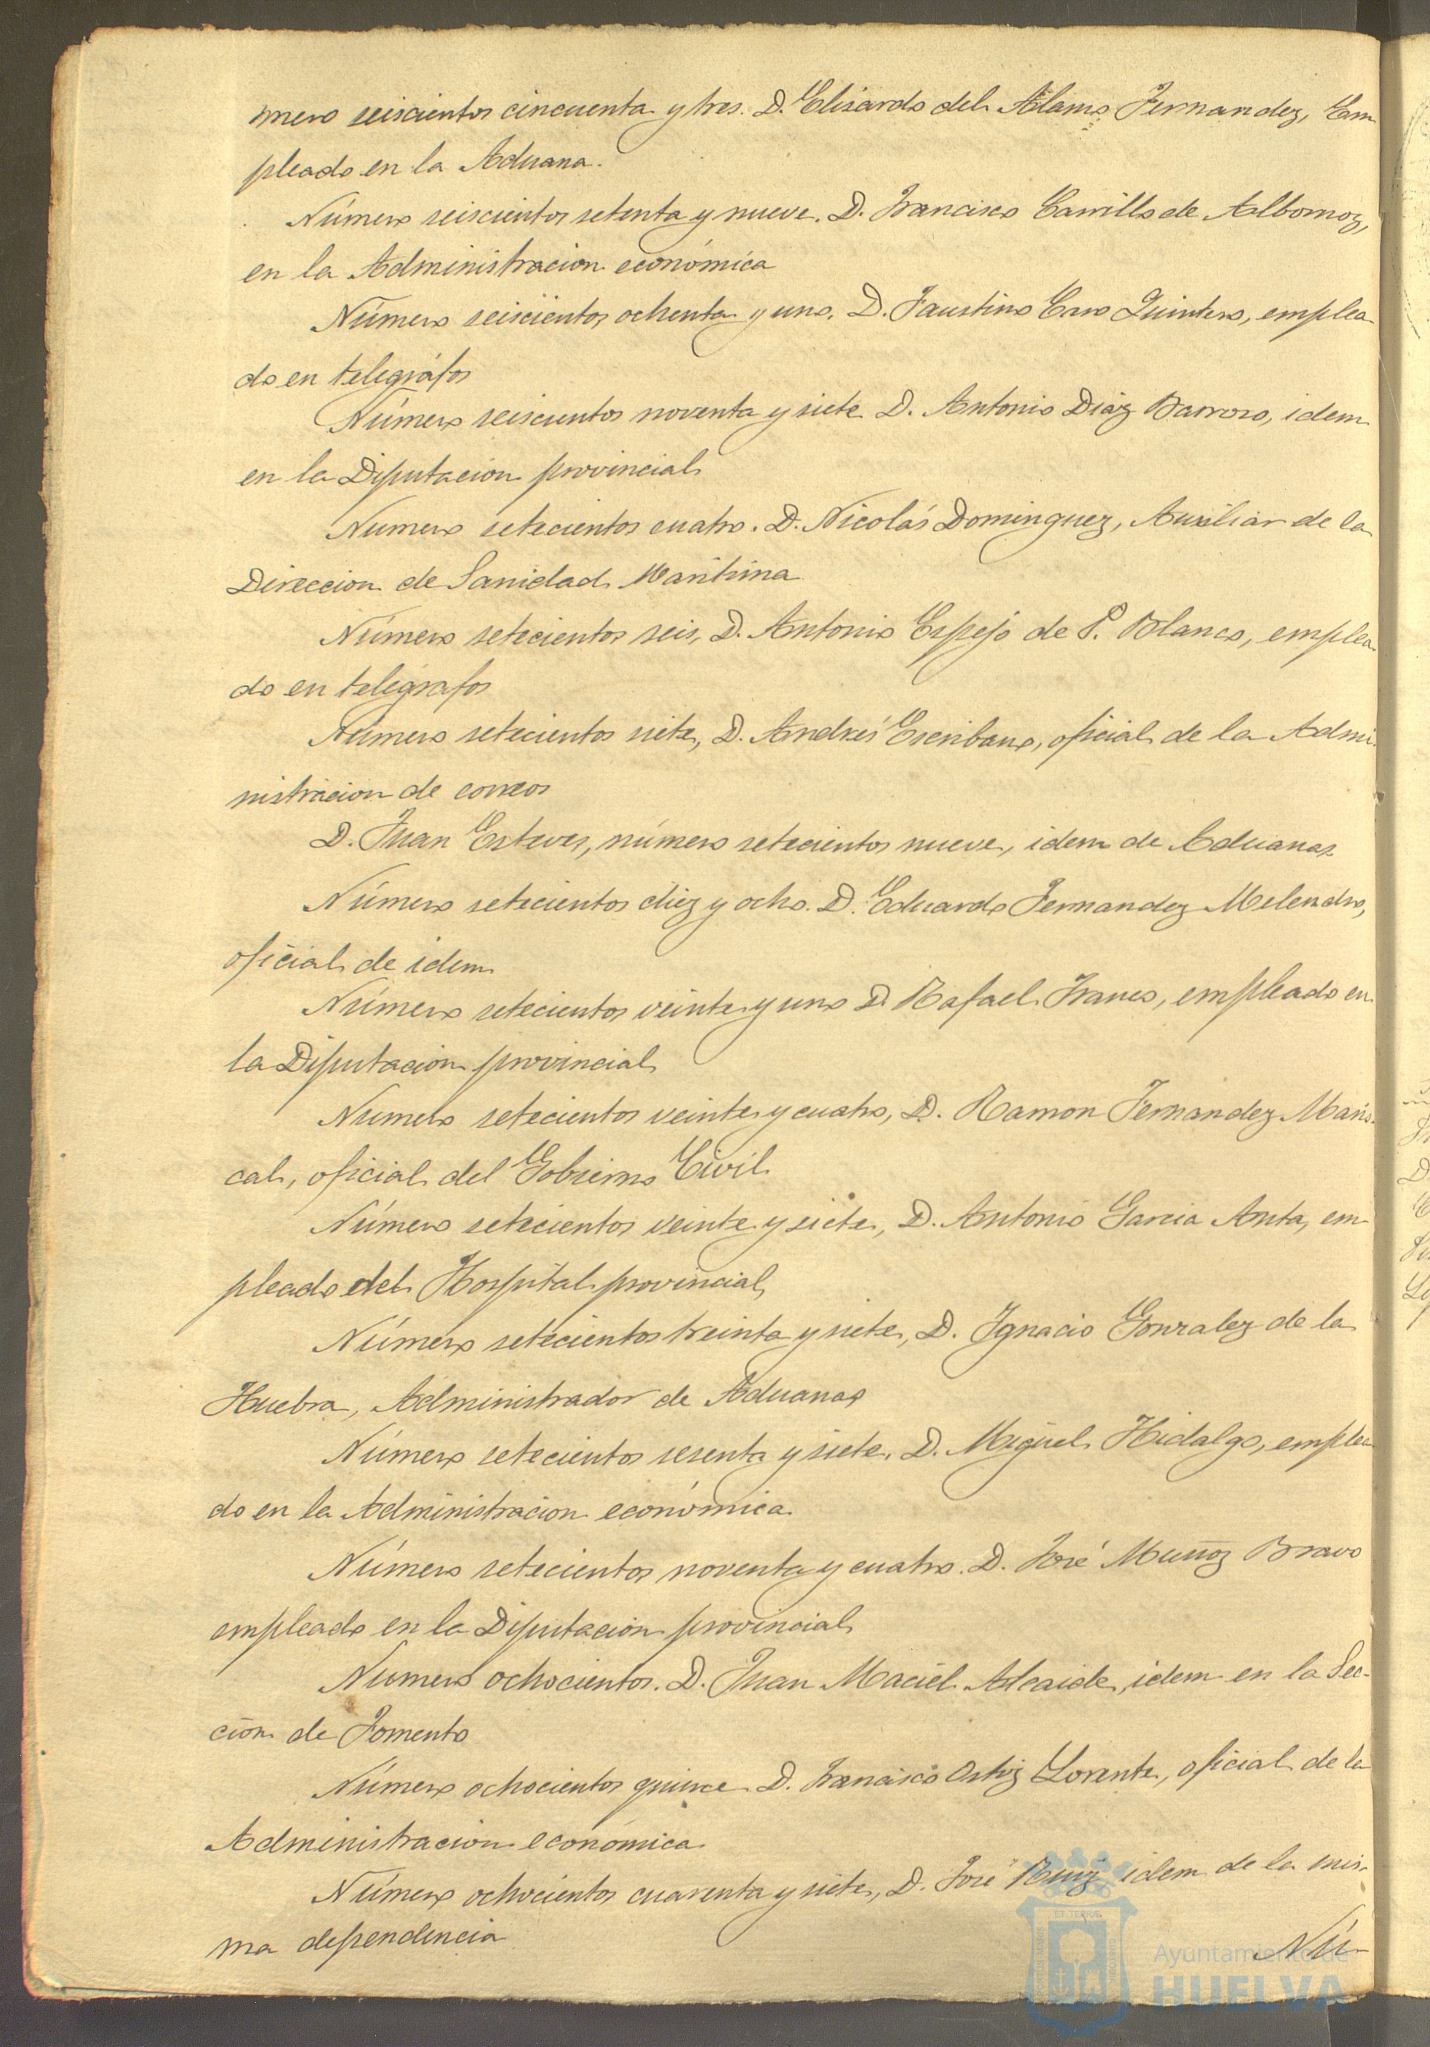 mero seiscientos cincuenta y tres. D. Elisardo del Alamo Fernandez, Em-
pleado en la Aduana.
Número seiscientos setenta y nueve. D. Francisco Carrillo de Albornoz,
en la Administracion económica
Número seiscientos ochenta y uno. D. Faustino Caro Quintero, emplea-
do en telegráfos
Número seiscientos noventa y siete D. Antonio Diaz Barroso, idem
en la Diputacion provincial
Numero setecientos cuatro. D. Nicolás Dominguez, Auxiliar de la
Direccion de Sanidad Maritima
Número setecientos seis, D. Antonio Espejo de P. Blanco, emplea-
do en telégrafos
Número setecientos siete, D. Andrés Escribano, oficial de la Admi-
nistracion de correos
D. Juan Esteves, número setecientos nueve, idem de Aduanas
Número setecientos diez y ocho. D. Eduardo Fernandez Melendro,
oficial de idem
Número setecientos veinte y uno D. Rafael Franco, empleado en
la Diputacion provincial
Numero setecientos veinte y cuatro, D. Ramon Fernandez Maris-
cal, oficial del Gobierno Civil
Número setecientos veinte y siete, D. Antonio Garcia Anta, em-
pleado del Hospital provincial
Número setecientos treinta y siete, D. Ignacio Gonzalez de la
Huebra, Administrador de Aduanas
Número setecientos sesenta y siete. D. Miguel Hidalgo, emplea-
do en la Administracion económica
Número setecientos noventa y cuatro. D. José Muñoz Bravo
empleado en la Diputacion provincial
Numero ochocientos. D. Juan Maciel Alcaide, idem en la Sec-
cion de Fomento
Número ochocientos quince D. Francisco Ortiz Lorente, oficial de la
Administracion económica
Número ochocientos cuarenta y siete, D. José Ruiz idem de la mis-
ma dependencia
Nú-
Ayuntamiento de
HUELVA